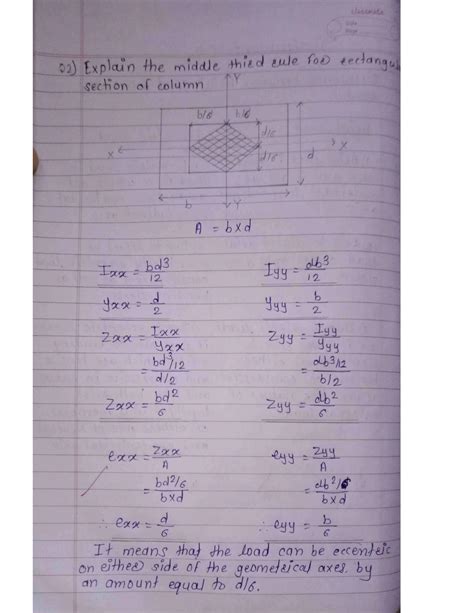 classmate
Date
Page
Q2) Explain the middle third rule for rectangular
section of column
Y
b/6 b/6
d/6
X X
d/6 d
b Y
A = b×d
Ixx = bd³/12 Iyy = db³/12
yxx = d/2 yyy = b/2
Zxx = Ixx/yxx Zyy = Iyy/yyy
= bd³/12 / d/2 = db³/12 / b/2
Zxx = bd²/6 Zyy = db²/6
exx = Zxx/A eyy = Zyy/A
= bd²/6 / b×d = db²/6 / b×d
∴ exx = d/6 ∴ eyy = b/6
It means that the load can be eccentric
on either side of the geometrical axes by
an amount equal to d/6.